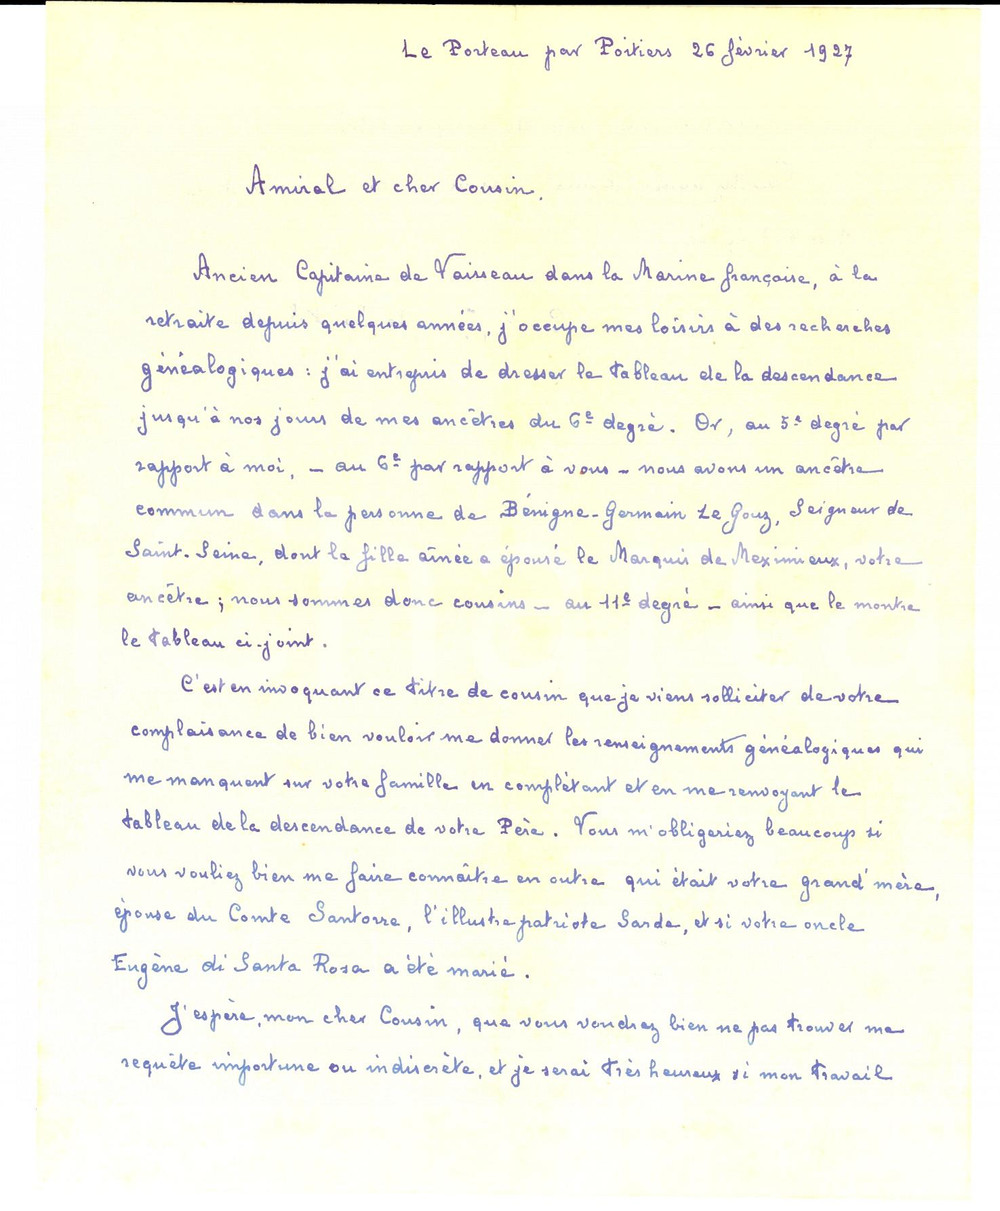 Le Porteau par Poitiers 26 février 1927
Amiral et cher Cousin.
Ancien Capitaine de Vaisseau dans la Marine française, à la
retraite depuis quelques années, j'occupe mes loisirs à des recherches
généalogiques : j'ai entrepris de dresser le tableau de la descendance
jusqu'à nos jours de mes ancêtres du 6e degré. Or, au 5e degré par
rapport à moi, - au 6e par rapport à vous - nous avons un ancêtre
commun dans la personne de Bénigne-Germain Le Gouz, Seigneur de
Saint-Seine, dont la fille aînée a épousé le Marquis de Meximieux, votre
ancêtre ; nous sommes donc cousins - au 11e degré - ainsi que le montre
le tableau ci-joint.
C'est en invoquant ce titre de cousin que je viens solliciter de votre
complaisance de bien vouloir me donner les renseignements généalogiques qui
me manquent sur votre famille en complétant et en me renvoyant le
tableau de la descendance de votre Père. Vous m'obligeriez beaucoup si
vous vouliez bien me faire connaître en outre qui était votre grand'mère,
épouse du Comte Santorre, l'illustre patriote Sarde, et si votre oncle
Eugène di Santa Rosa a été marié.
J'espère, mon cher Cousin, que vous voudrez bien ne pas trouver ma
requête importune ou indiscrète, et je serai très heureux si mon travail